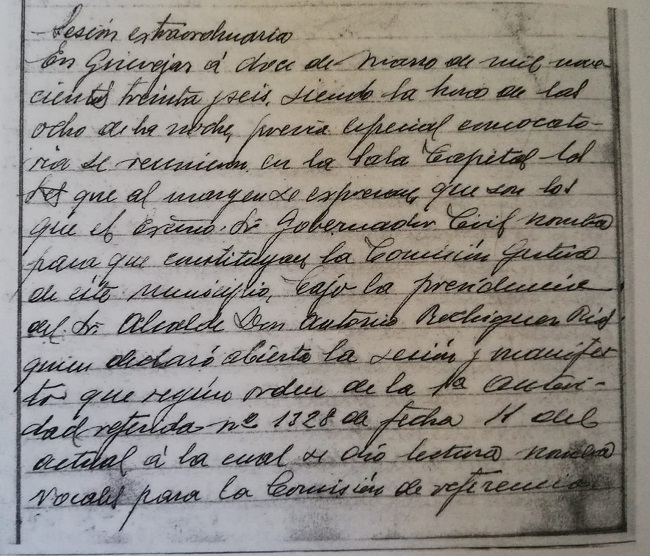 Sesión extraordinaria
En Güevejar á doce de Marzo de mil nove
cientos treinta y seis, siendo la hora de las
ocho de la noche, previa especial convocato-
ria se reunieron en la Sala Capitular los
que al margen se expresan, que son los
que el Excmo. Sr. Gobernador Civil nombra
para que constituyan la Comisión Gestora
de este municipio, bajo la presidencia
del Sr. Alcalde Don Antonio Rodriguez
quien declaró abierta la sesión y manifes-
tó que según orden de la 1ª Autori-
dad referida nº 1328 de fecha 11 del
actual á la cual se dio lectura nombra
vocales para la Comisión de referencia